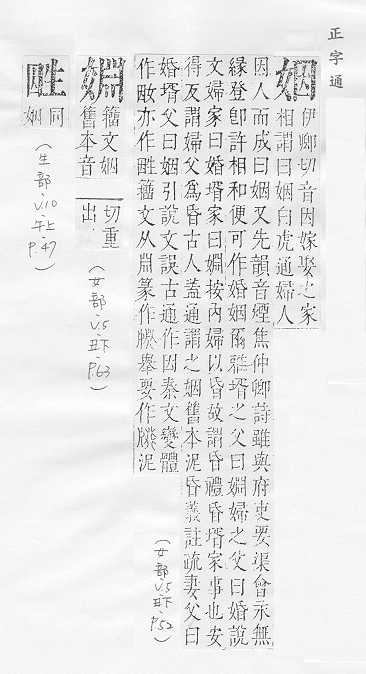 正字通
姻
伊卿切音因嫁娶之家
相謂曰姻白虎通婦人
因人而成曰姻又先韻音煙焦仲卿詩雖與府吏要渠曾永無
緣登卽許相和便可作婚姻爾雅壻之父曰婣婦之父曰婚說
文婦家曰婚壻家曰婣按內婦以昏故謂昏禮昏壻家事也安
得反謂婦父爲昏古人蓋通謂之姻舊本泥昏義註疏妻父曰
婚壻父曰姻引說文誤古通作因秦文變體
作亦作籀文从淵篆作舉要作泥
(女部、v.5、丑下、P.52)
婣
籀文姻
舊本音
切重
出
(女部、v.5、丑下、P.63)
同
姻
(生部、v.10、午上、P.47)